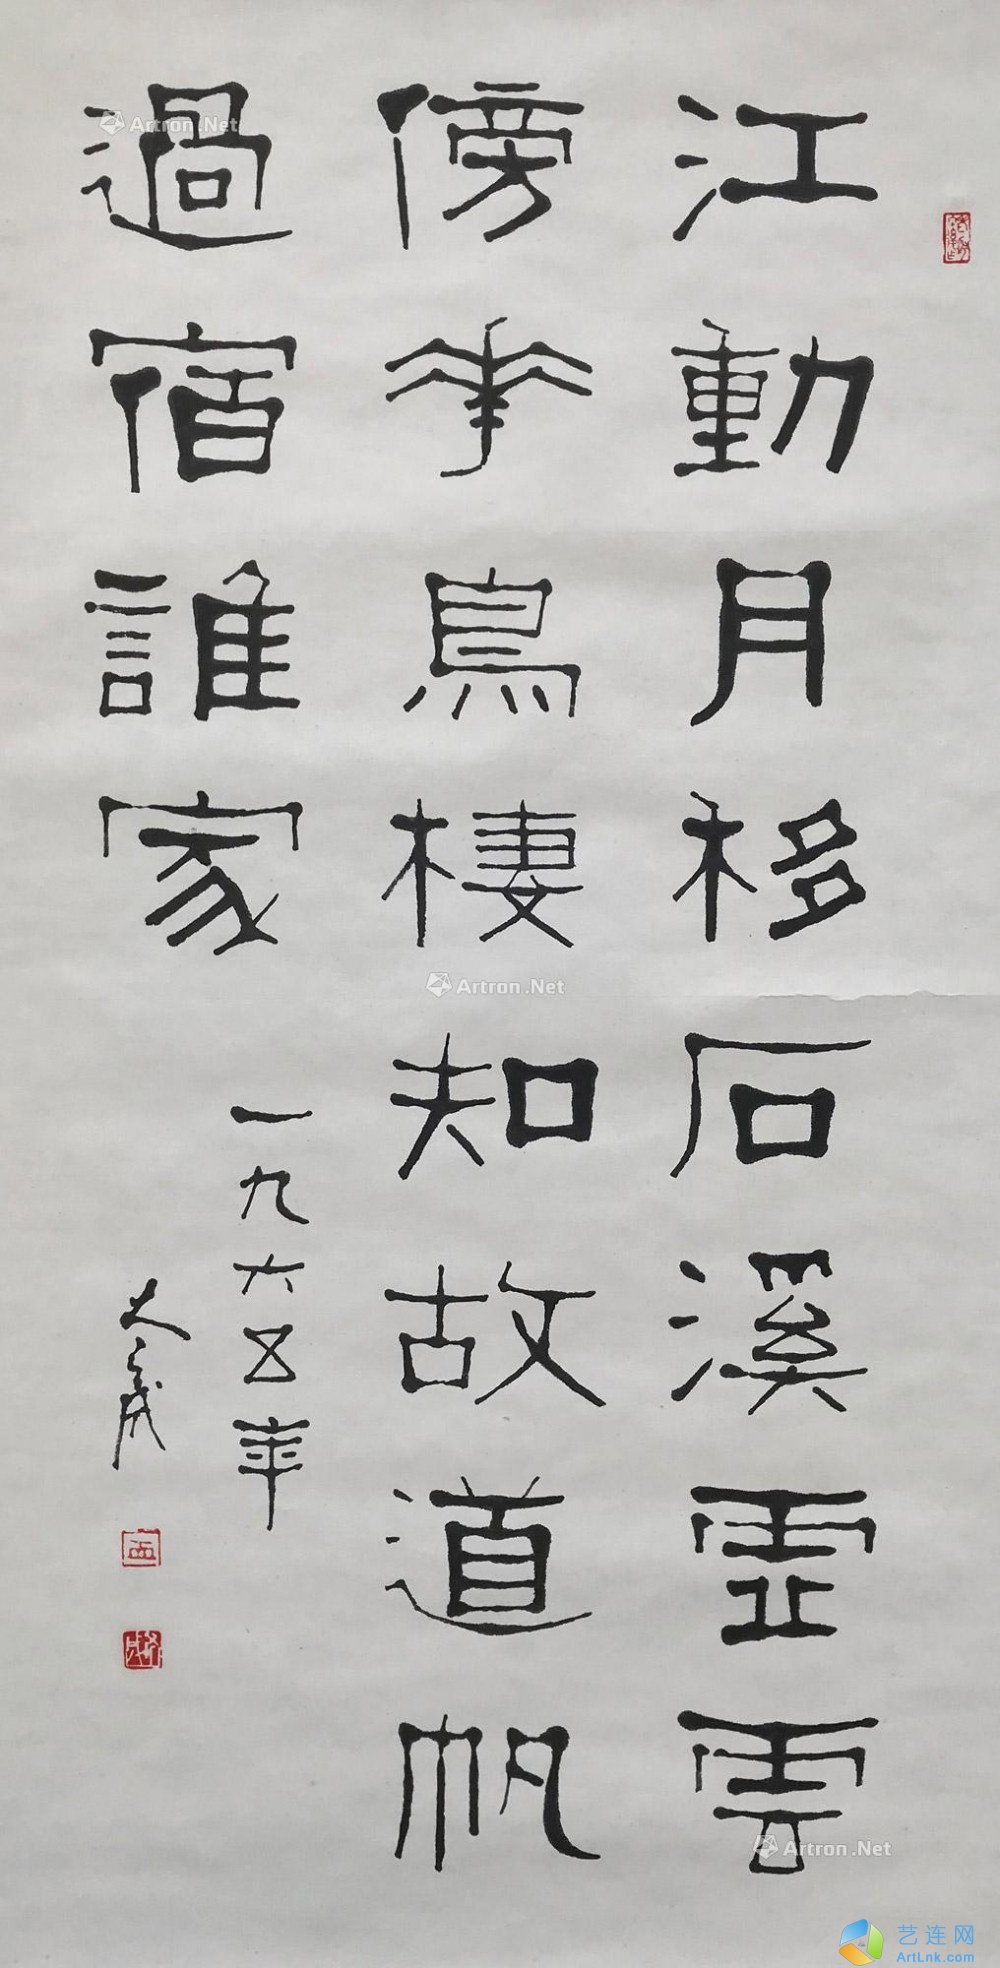 江動月移石溪虛雲
傍花鳥棲知故道帆
過宿誰家
一九六五年
Artron.Net
Artron.Net
Artron.Net
艺连网
ArtLnk.com